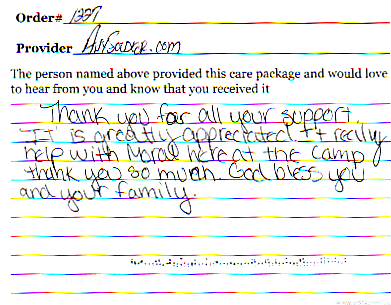 Order# 1337
Provider AnySoldier.com
The person named above provided this care package and would love
to hear from you and know that you received it
Thank you for all your support.
It is greatly appreciated It really
help with Moral here at the camp
thank you so much God bless you
and your family.